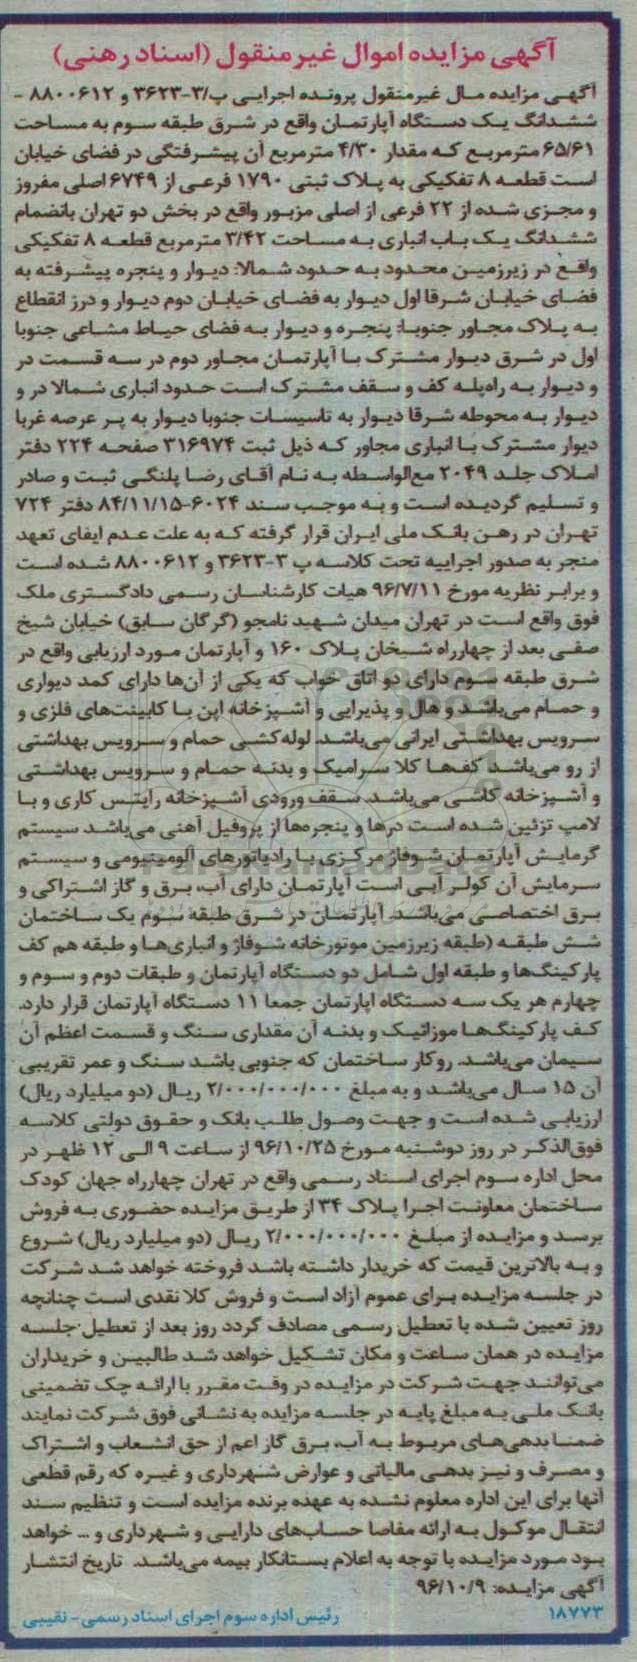 آگهی مزایده اموال غیرمنقول (اسناد رهنی)
آگهی مزایده مال غیرمنقول پرونده اجرایی پ/۳-۳۶۲۳ و ۸۸۰۰۶۱۲ -
ششدانگ یک دستگاه آپارتمان واقع در شرق طبقه سوم به مساحت
۶۵/۶۱ مترمربع که مقدار ۴/۳۰ مترمربع آن پیشرفتگی در فضای خیابان
است قطعه ۸ تفکیکی به پلاک ثبتی ۱۷۹۰ فرعی از ۶۷۴۹ اصلی مفروز
و مجزی شده از ۲۲ فرعی از اصلی مزبور واقع در بخش دو تهران بانضمام
ششدانگ یک باب انباری به مساحت ۳/۴۲ مترمربع قطعه ۸ تفکیکی
واقع در زیرزمین محدود به حدود شمالا: دیوار و پنجره پیشرفته به
فضای خیابان شرقا اول دیوار به فضای خیابان دوم دیوار و درز انقطاع
به پلاک مجاور جنوبا: پنجره و دیوار به فضای حیاط مشاعی جنوبا
اول در شرق دیوار مشترک با آپارتمان مجاور دوم در سه قسمت در
و دیوار به راه‌پله کف و سقف مشترک است حدود انباری شمالا در و
دیوار به محوطه شرقا دیوار به تاسیسات جنوبا دیوار به پر عرصه غربا
دیوار مشترک با انباری مجاور که ذیل ثبت ۳۱۶۹۷۴ صفحه ۲۲۴ دفتر
املاک جلد ۲۰۴۹ مع‌الواسطه به نام آقای رضا پلنگی ثبت و صادر
و تسلیم گردیده است و به موجب سند ۶۰۲۴-۸۴/۱۱/۱۵ دفتر ۷۲۴
تهران در رهن بانک ملی ایران قرار گرفته که به علت عدم ایفای تعهد
منجر به صدور اجراییه تحت کلاسه پ ۳-۳۶۲۳ و ۸۸۰۰۶۱۲ شده است
و برابر نظریه مورخ ۹۶/۷/۱۱ هیات کارشناسان رسمی دادگستری ملک
فوق واقع است در تهران میدان شهید نامجو (گرگان سابق) خیابان شیخ
صفی بعد از چهارراه شیخان پلاک ۱۶۰ و آپارتمان مورد ارزیابی واقع در
شرق طبقه سوم دارای دو اتاق خواب که یکی از آن‌ها دارای کمد دیواری
و حمام می‌باشد و هال و پذیرایی و آشپزخانه اپن با کابینت‌های فلزی و
سرویس بهداشتی ایرانی می‌باشد. لوله‌کشی حمام و سرویس بهداشتی
از رو می‌باشد کف‌ها کلا سرامیک و بدنه حمام و سرویس بهداشتی
و آشپزخانه کاشی می‌باشد. سقف ورودی آشپزخانه رابتس کاری و با
لامپ تزئین شده است درها و پنجره‌ها از پروفیل آهنی می‌باشد سیستم
گرمایش آپارتمان شوفاژ مرکزی با رادیاتورهای آلومینیومی و سیستم
سرمایش آن کولر آبی است آپارتمان دارای آب، برق و گاز اشتراکی و
برق اختصاصی می‌باشد. آپارتمان در شرق طبقه سوم یک ساختمان
شش طبقه (طبقه زیرزمین موتورخانه شوفاژ و انباری‌ها و طبقه هم کف
پارکینگ‌ها و طبقه اول شامل دو دستگاه آپارتمان و طبقات دوم و سوم و
چهارم هر یک سه دستگاه اپارتمان جمعا ۱۱ دستگاه آپارتمان قرار دارد.
کف پارکینگ‌ها موزائیک و بدنه آن مقداری سنگ و قسمت اعظم آن
سیمان می‌باشد. روکار ساختمان که جنوبی باشد سنگ و عمر تقریبی
آن ۱۵ سال می‌باشد و به مبلغ ۲/۰۰۰/۰۰۰/۰۰۰ ریال (دو میلیارد ریال)
ارزیابی شده است و جهت وصول طلب بانک و حقوق دولتی کلاسه
فوق‌الذکر در روز دوشنبه مورخ ۹۶/۱۰/۲۵ از ساعت ۹ الی ۱۲ ظهر در
محل اداره سوم اجرای اسناد رسمی واقع در تهران چهارراه جهان کودک
ساختمان معاونت اجرا پلاک ۳۴ از طریق مزایده حضوری به فروش
برسد و مزایده از مبلغ ۲/۰۰۰/۰۰۰/۰۰۰ ریال (دو میلیارد ریال) شروع
و به بالاترین قیمت که خریدار داشته باشد فروخته خواهد شد شرکت
در جلسه مزایده برای عموم آزاد است و فروش کلا نقدی است چنانچه
روز تعیین شده با تعطیل رسمی مصادف گردد روز بعد از تعطیل جلسه
مزایده در همان ساعت و مکان تشکیل خواهد شد طالبین و خریداران
می‌توانند جهت شرکت در مزایده در وقت مقرر با ارائه چک تضمینی
بانک ملی به مبلغ پایه در جلسه مزایده به نشانی فوق شرکت نمایند
ضمنا بدهی‌های مربوط به آب، برق گاز اعم از حق انشعاب و اشتراک
و مصرف و نیز بدهی مالیاتی و عوارض شهرداری و غیره که رقم قطعی
آنها برای این اداره معلوم نشده به عهده برنده مزایده است و تنظیم سند
انتقال موکول به ارائه مفاصا حساب‌های دارایی و شهرداری و ... خواهد
بود مورد مزایده با توجه به اعلام بستانکار بیمه می‌باشد. تاریخ انتشار
آگهی مزایده: ۹۶/۱۰/۹
۱۸۷۷۳ رئیس اداره سوم اجرای اسناد رسمی - نقیبی